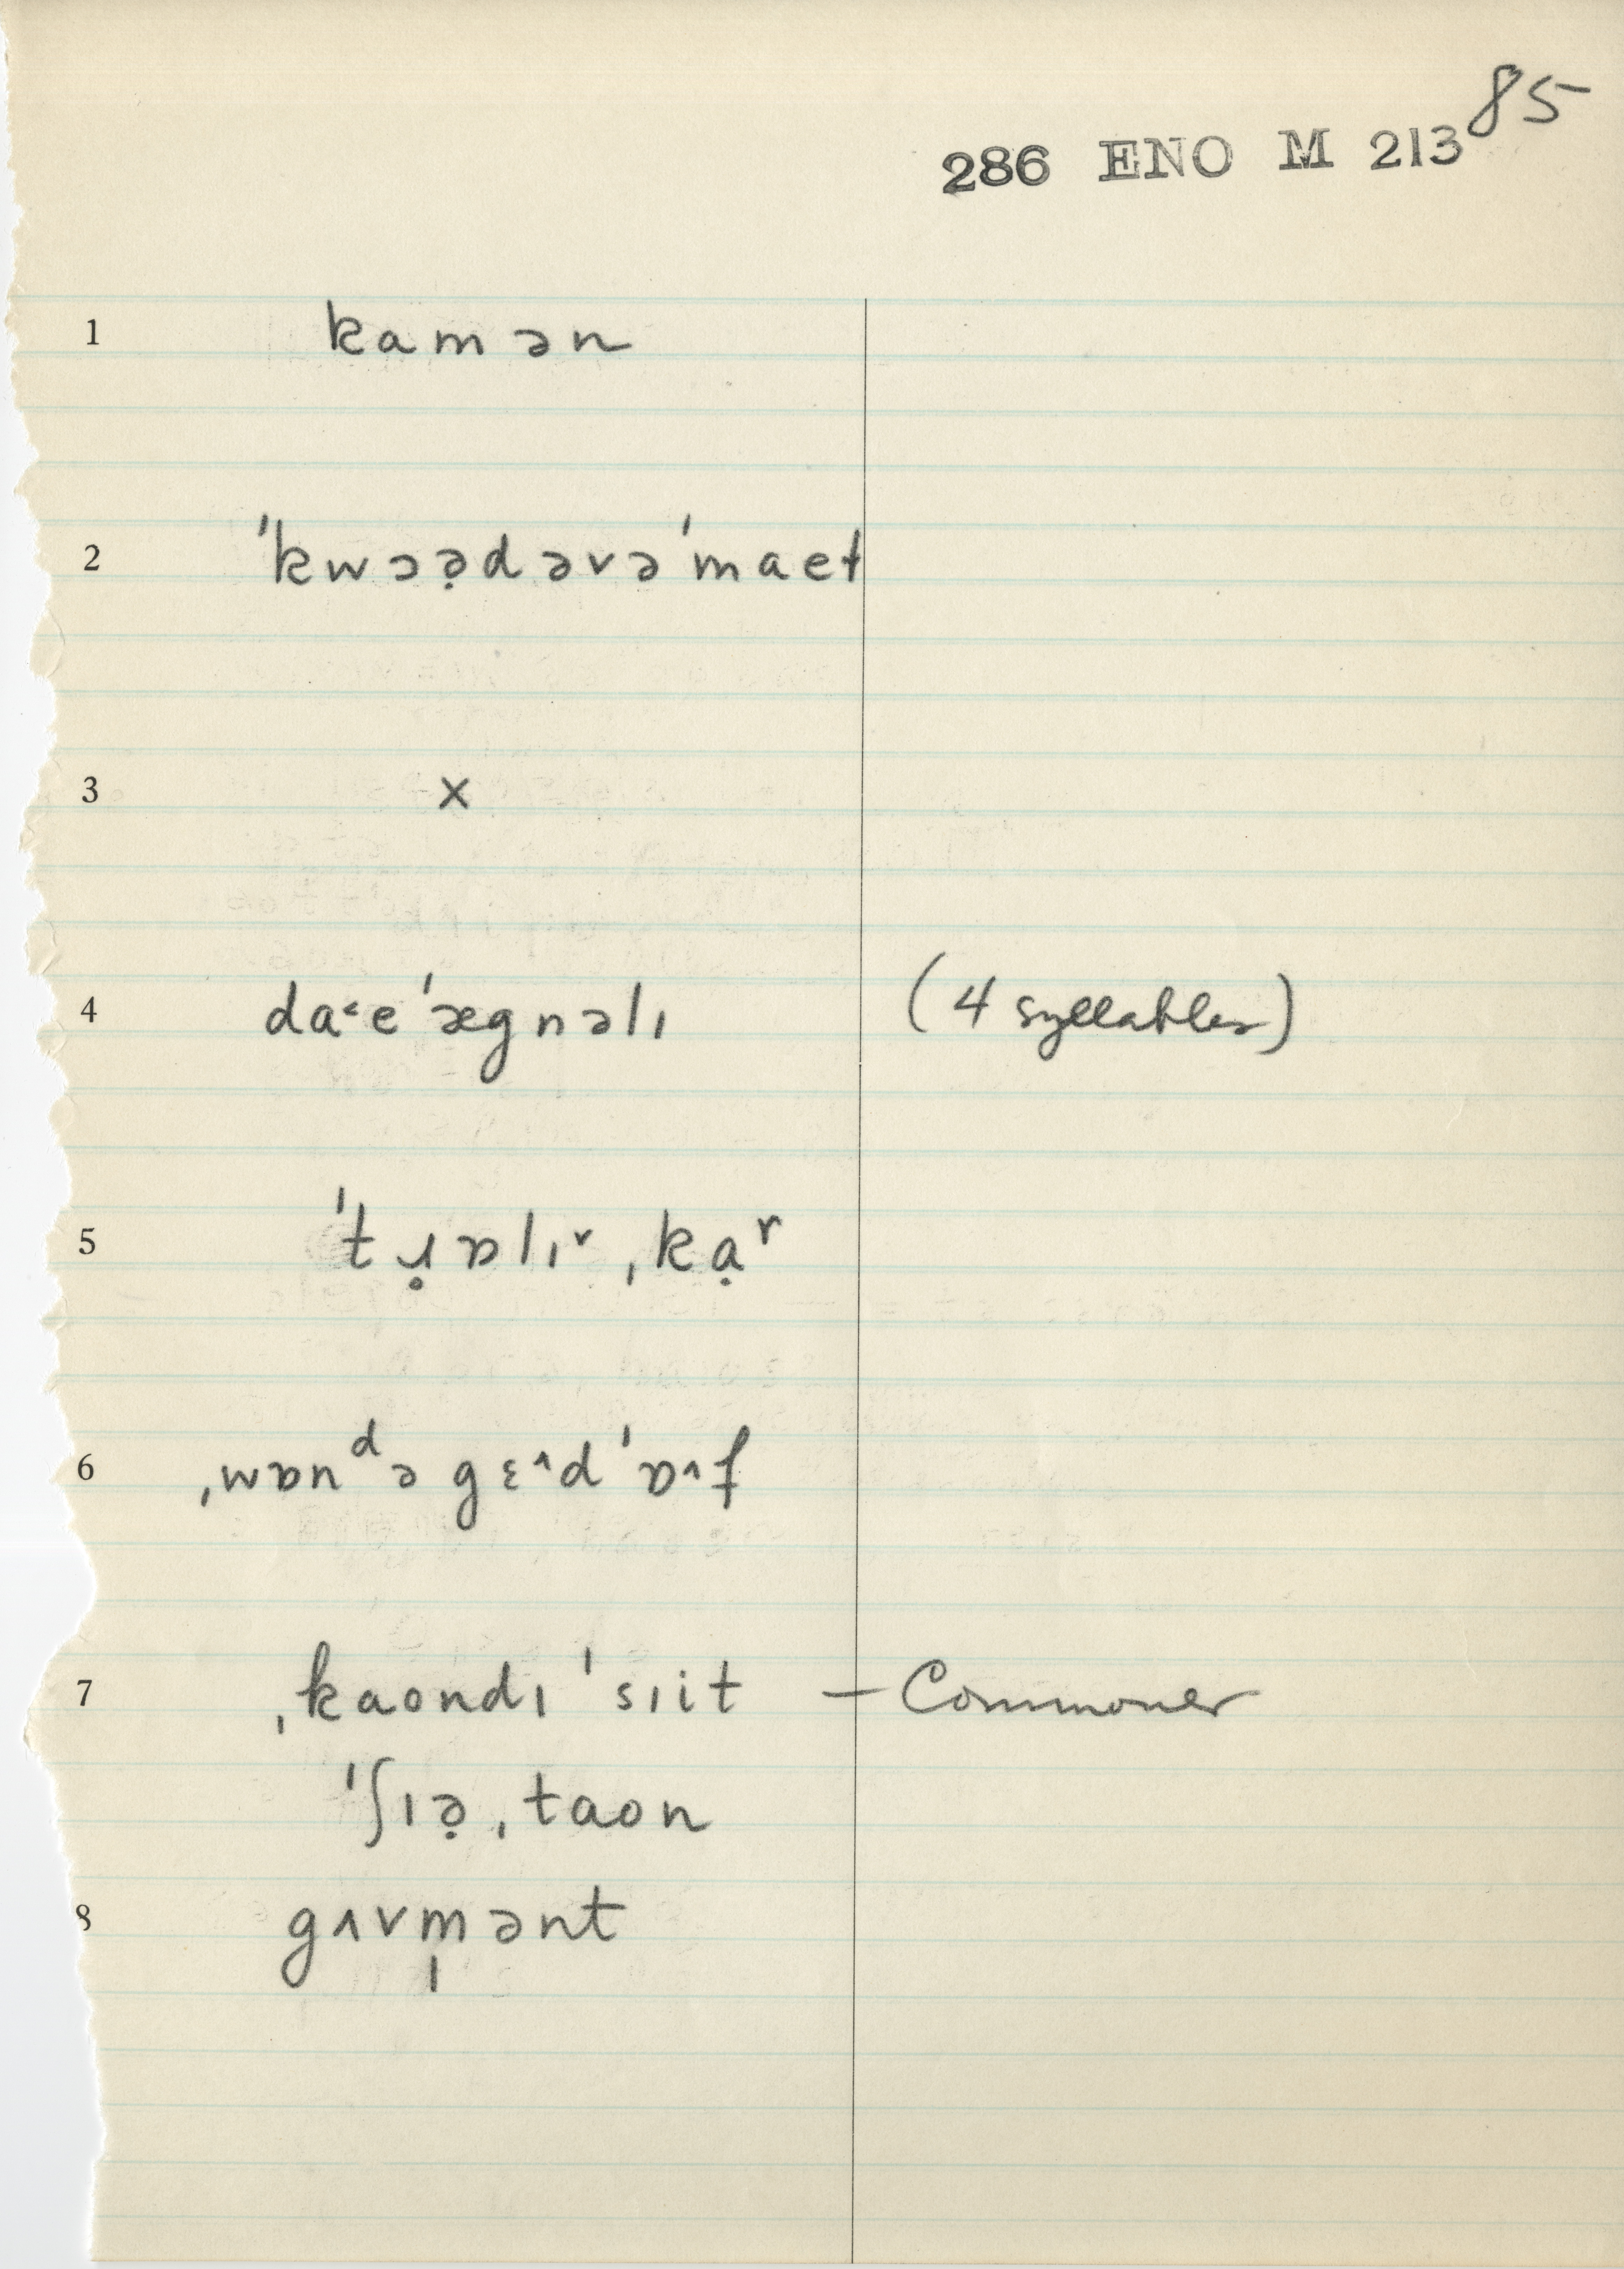 85
286 ENO M 213
1 kamən
2 ˈkwɔə̣dəvəˈmaet
3 x
4 da˂eˈægnəlɪ (4 syllables)
5 ˈtɹ̣ɒlɪ˅ˌkạʳ
6 ˌwɒnᵈəgɛ˄dˈɒ˄f
7 ˌkaondɪˈsɪit – Commoner
ˈʃɪə̣ˌtaon
8 gʌvm̩ənt